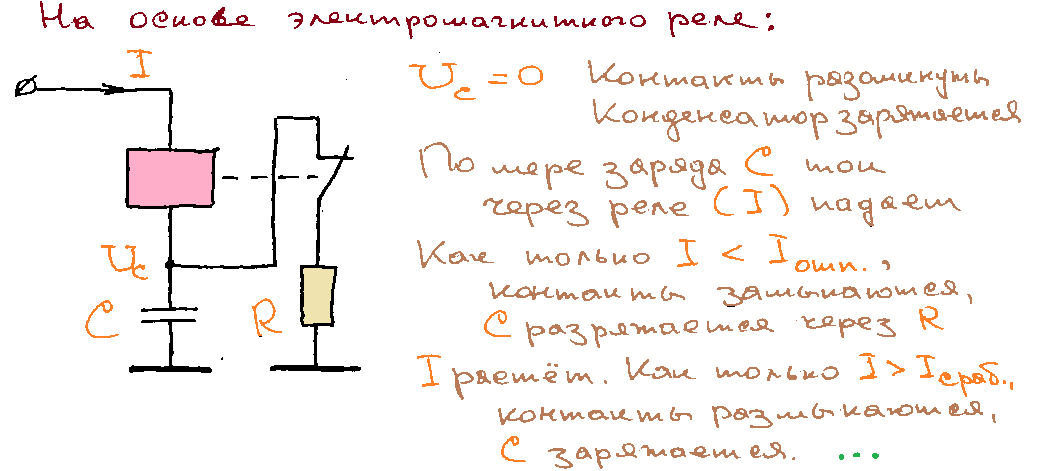 На основе электромагнитного реле:
I
U_c = 0 Контакты разомкнуты
Конденсатор заряжается
По мере заряда C ток
через реле (I) падает
Как только I < I_отп.,
контакты замыкаются,
C разряжается через R
I растёт. Как только I > I_сраб.,
контакты размыкаются,
C заряжается. ...
U_c
C
R